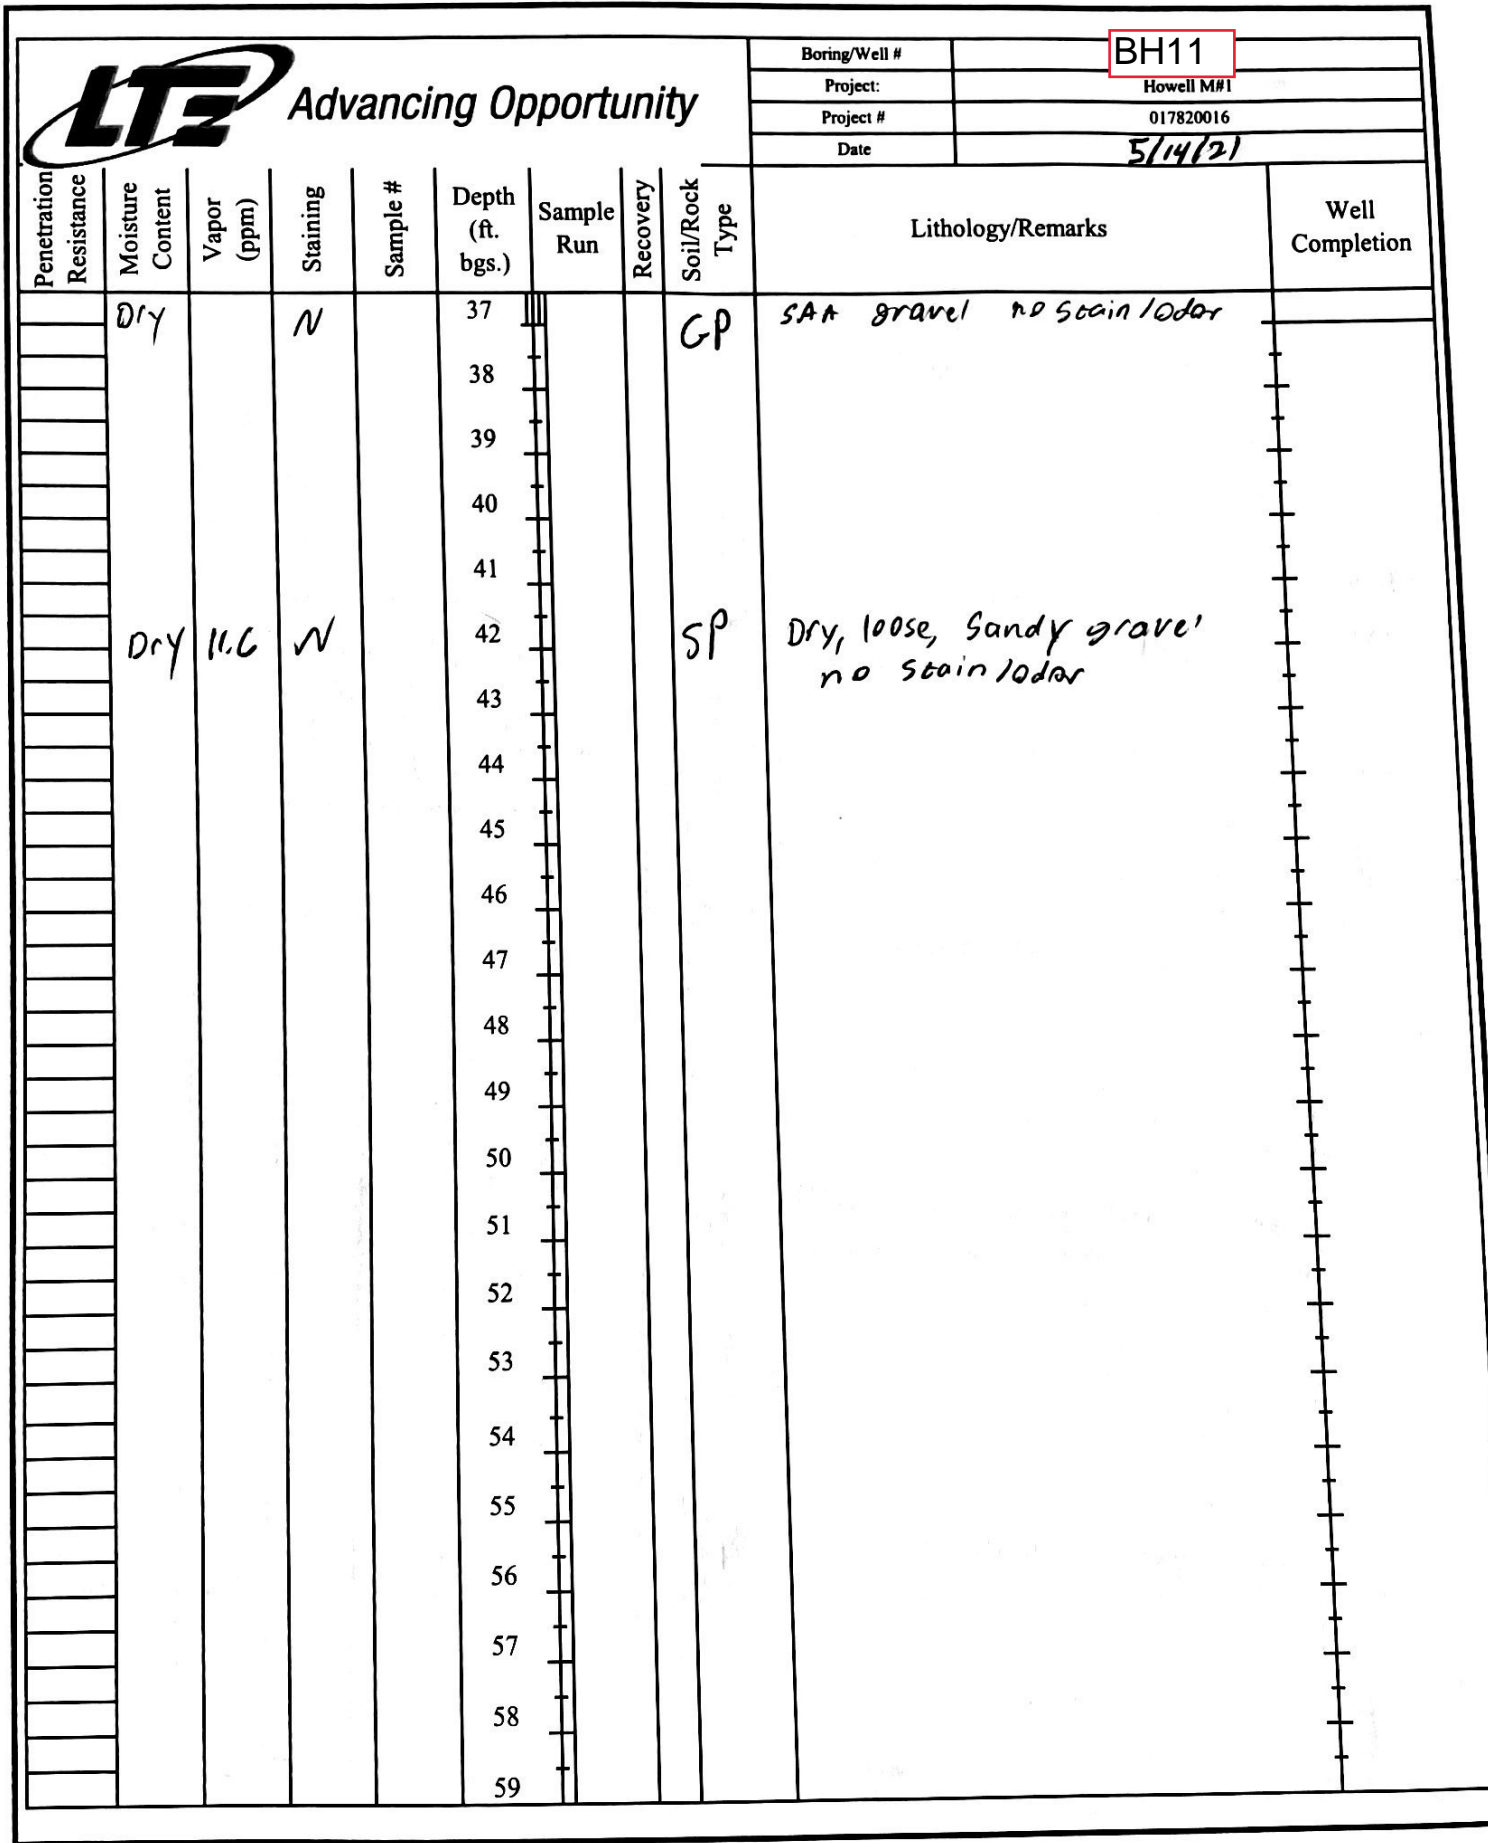 LTE Advancing Opportunity
Boring/Well # BH11
Project: Howell M#1
Project # 017820016
Date 5/14/21
Penetration Resistance
Moisture Content
Vapor (ppm)
Staining
Sample #
Depth (ft. bgs.)
Sample Run
Recovery
Soil/Rock Type
Lithology/Remarks
Well Completion
Dry N 37 GP SAA gravel no stain/odor
38
39
40
41
Dry 11.6 N 42 SP Dry, loose, Sandy gravel
no stain/odor
43
44
45
46
47
48
49
50
51
52
53
54
55
56
57
58
59